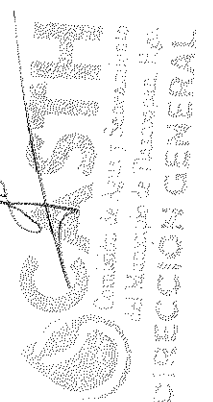 CAASTH
Comisión de Agua y Saneamiento
del Municipio de
DIRECCIÓN GENERAL